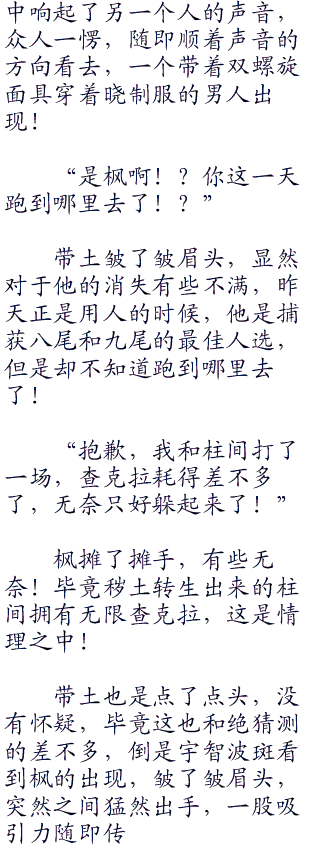 中响起了另一个人的声音，
众人一愣，随即顺着声音的
方向看去，一个带着双螺旋
面具穿着晓制服的男人出
现！
“是枫啊！？你这一天
跑到哪里去了！？”
带土皱了皱眉头，显然
对于他的消失有些不满，昨
天正是用人的时候，他是捕
获八尾和九尾的最佳人选，
但是却不知道跑到哪里去
了！
“抱歉，我和柱间打了
一场，查克拉耗得差不多
了，无奈只好躲起来了！”
枫摊了摊手，有些无
奈！毕竟秽土转生出来的柱
间拥有无限查克拉，这是情
理之中！
带土也是点了点头，没
有怀疑，毕竟这也和绝猜测
的差不多，倒是宇智波斑看
到枫的出现，皱了皱眉头，
突然之间猛然出手，一股吸
引力随即传